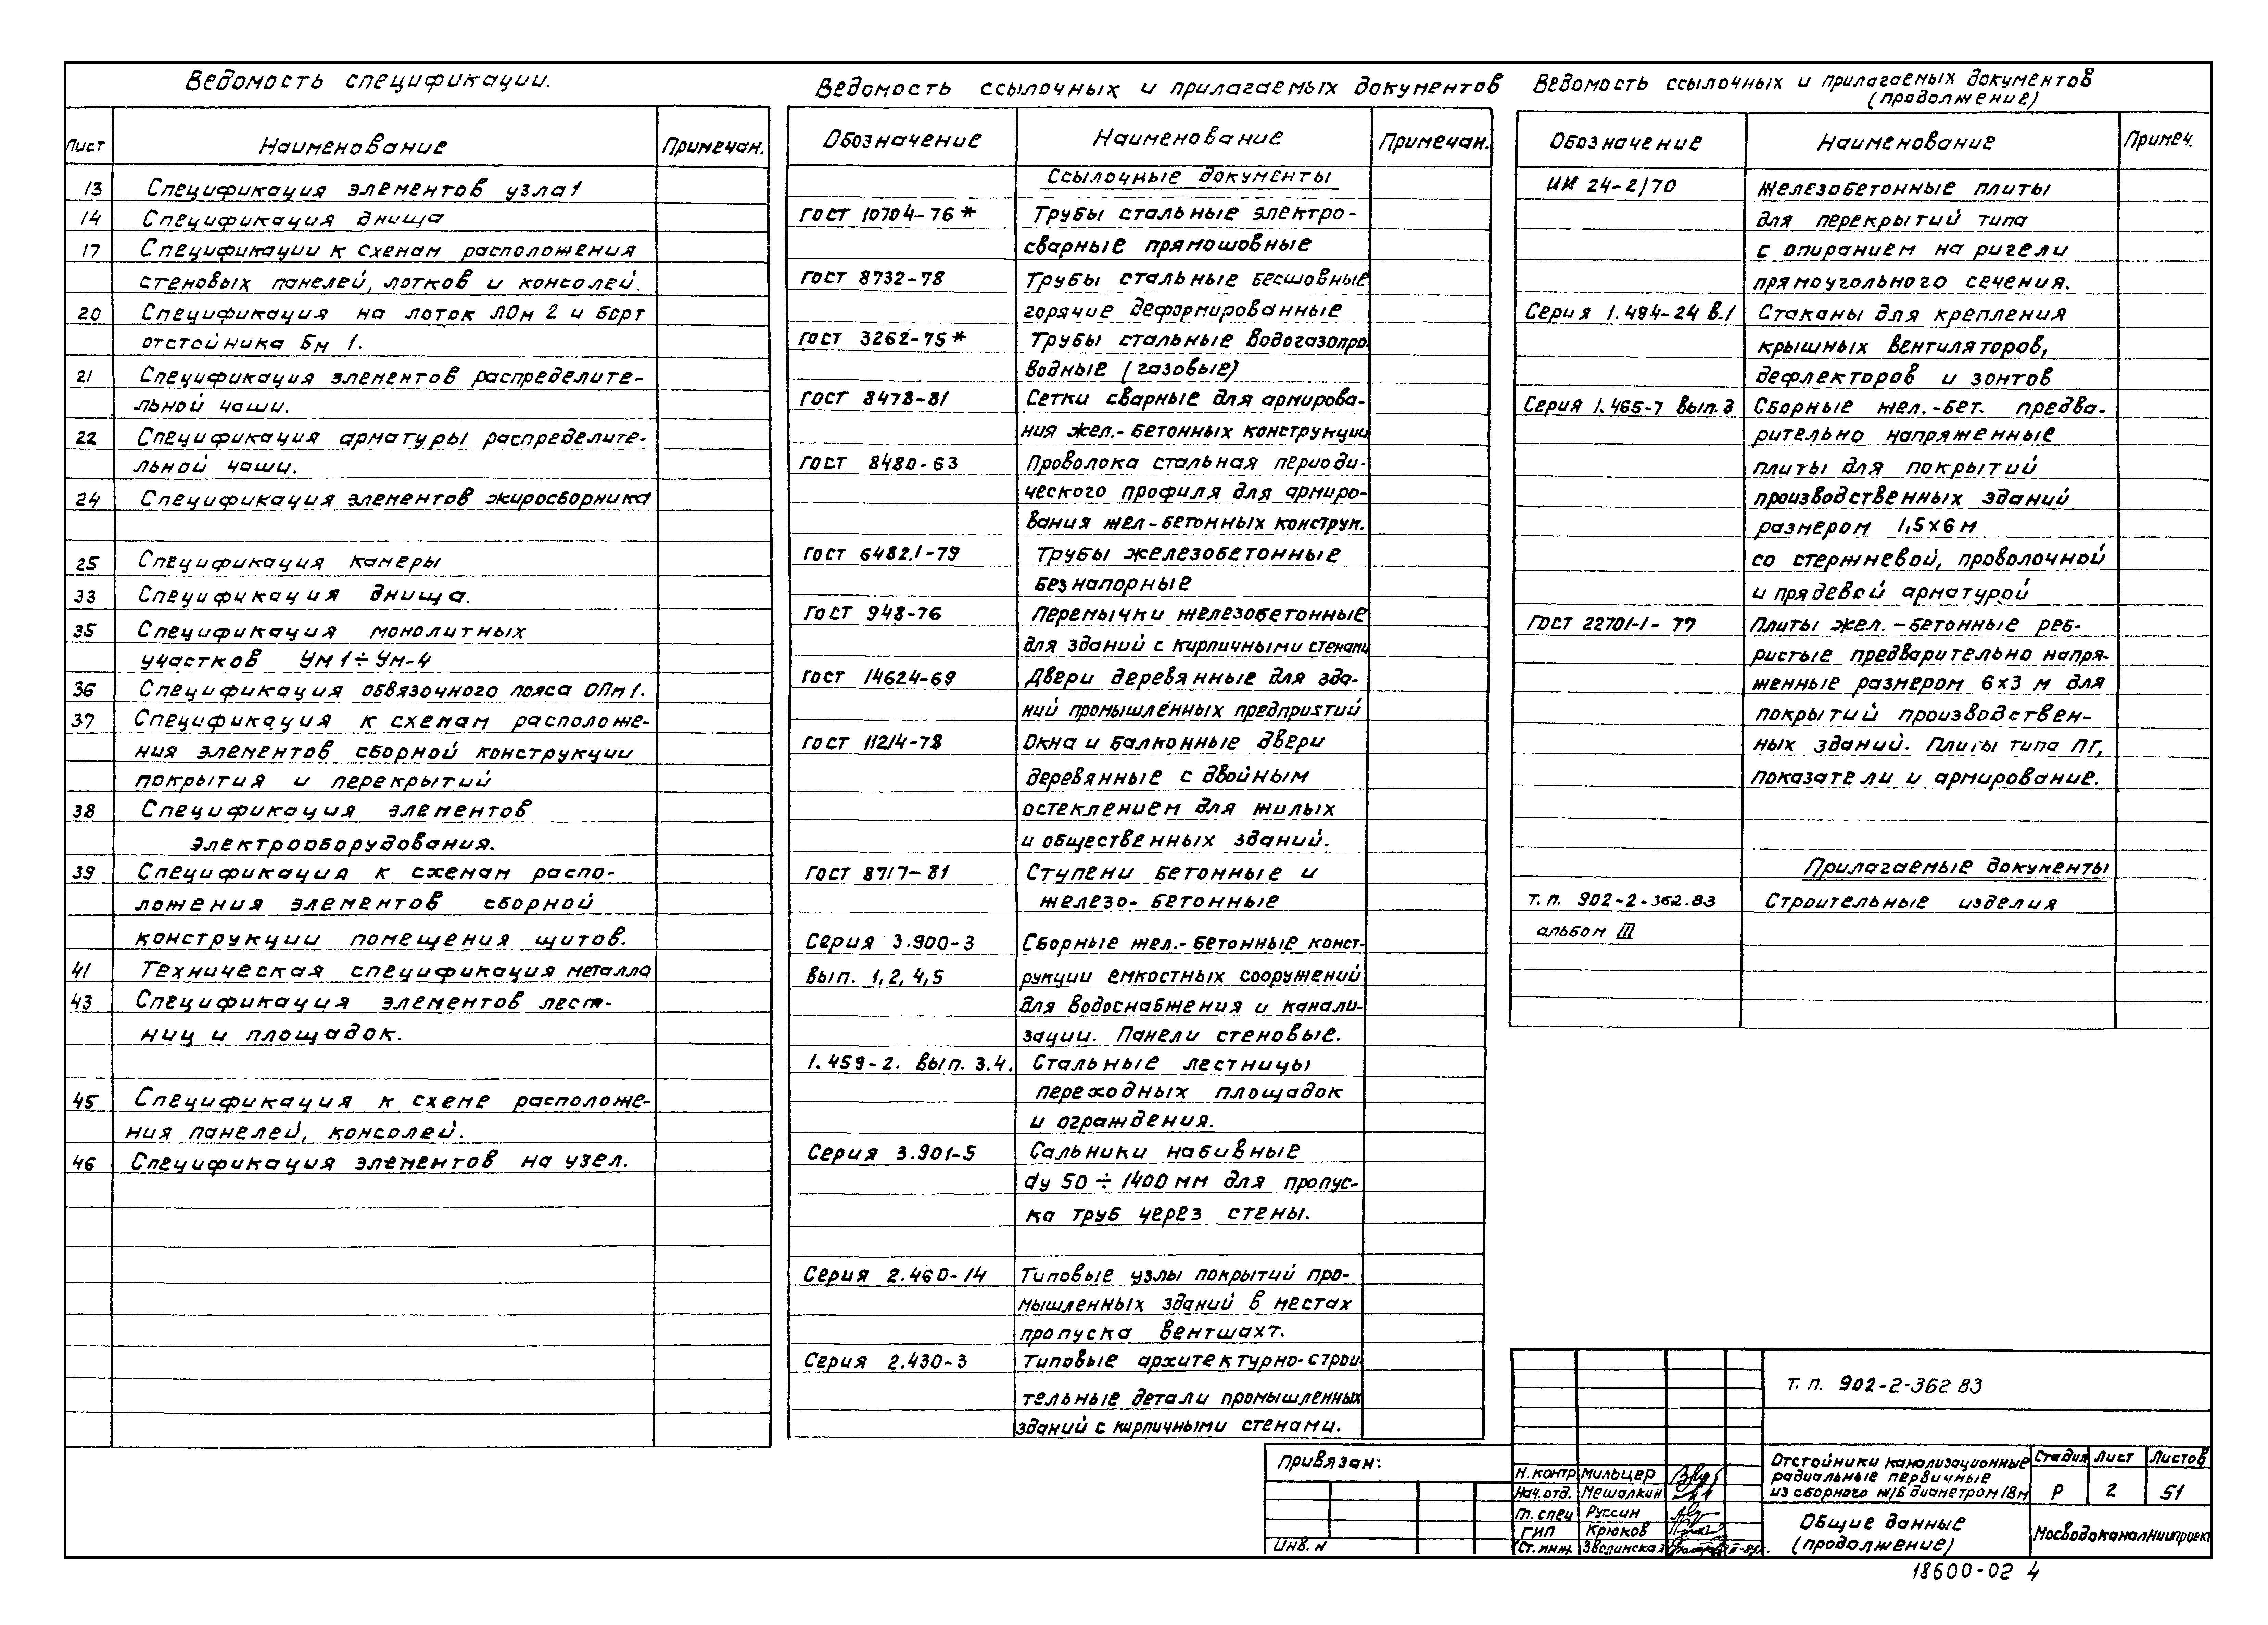 Ведомость спецификации.
Лист Наименование Примечан.
13 Спецификация элементов узла1
14 Спецификация днища
17 Спецификации к схемам расположения
стеновых панелей, лотков и консолей.
20 Спецификация на лоток ЛОм 2 и борт
отстойника Бм 1.
21 Спецификация элементов распределите-
льной чаши.
22 Спецификация арматуры распределите-
льной чаши.
24 Спецификация элементов жиросборника
25 Спецификация камеры
33 Спецификация днища.
35 Спецификация монолитных
участков Ум1÷Ум-4
36 Спецификация обвязочного пояса ОПм1.
37 Спецификация к схемам расположе-
ния элементов сборной конструкции
покрытия и перекрытий
38 Спецификация элементов
электрооборудования.
39 Спецификация к схемам распо-
ложения элементов сборной
конструкции помещения щитов.
41 Техническая спецификация металла
43 Спецификация элементов лест-
ниц и площадок.
45 Спецификация к схеме расположе-
ния панелей, консолей.
46 Спецификация элементов на узел.
Ведомость ссылочных и прилагаемых документов
Обозначение Наименование Примечан.
Ссылочные документы
ГОСТ 10704-76* Трубы стальные электро-
сварные прямошовные
ГОСТ 8732-78 Трубы стальные бесшовные
горячие деформированные
ГОСТ 3262-75* Трубы стальные водогазопро
водные (газовые)
ГОСТ 8478-81 Сетки сварные для армирова-
ния жел.-бетонных конструкции
ГОСТ 8480-63 Проволока стальная периоди-
ческого профиля для армиро-
вания жел-бетонных конструк.
ГОСТ 6482.1-79 Трубы железобетонные
безнапорные
ГОСТ 948-76 Перемычки железобетонные
для зданий с кирпичными стенами
ГОСТ 14624-69 Двери деревянные для зда-
ний промышленных предприятий
ГОСТ 11214-78 Окна и балконные двери
деревянные с двойным
остеклением для жилых
и общественных зданий.
ГОСТ 8717-81 Ступени бетонные и
железо-бетонные
Серия 3.900-3 Сборные жел.-бетонные конст-
Вып. 1, 2, 4, 5 рукции емкостных сооружений
для водоснабжения и канали-
зации. Панели стеновые.
1.459-2. Вып. 3.4. Стальные лестницы
переходных площадок
и ограждения.
Серия 3.901-5 Сальники набивные
dу 50÷1400 мм для пропус-
ка труб через стены.
Серия 2.460-14 Типовые узлы покрытий про-
мышленных зданий в местах
пропуска вентшахт.
Серия 2.430-3 Типовые архитектурно-строи
тельные детали промышленных
зданий с кирпичными стенами.
Ведомость ссылочных и прилагаемых документов
(продолжение)
Обозначение Наименование Примеч.
ИИ 24-2/70 Железобетонные плиты
для перекрытий типа
с опиранием на ригели
прямоугольного сечения.
Серия 1.494-24 В.1 Стаканы для крепления
крышных вентиляторов,
дефлекторов и зонтов
Серия 1.465-7 Вып.3 Сборные жел.-бет. предва-
рительно напряженные
плиты для покрытий
производственных зданий
размером 1,5х6 м
со стержневой, проволочной
и прядевой арматурой
ГОСТ 22701-1-77 Плиты жел.-бетонные реб-
ристые предварительно напря-
женные размером 6х3 м для
покрытий производствен-
ных зданий. Плиты типа ПГ,
показатели и армирование.
Прилагаемые документы
т.п. 902-2-362.83 Строительные изделия
альбом III
Привязан:
Инв. н
Н.контр Мильцер
Нач.отд. Мешалкин
Гл. спец Руссин
ГИП Крюков
Ст. инж. Зволинская
т. п. 902-2-362 83
Отстойники канализационные
радиальные первичные
из сборного ж/б диаметром 18м
Стадия Лист Листов
Р 2 51
Общие данные
(продолжение)
МосводоканалНИИпроект
18600-02 4